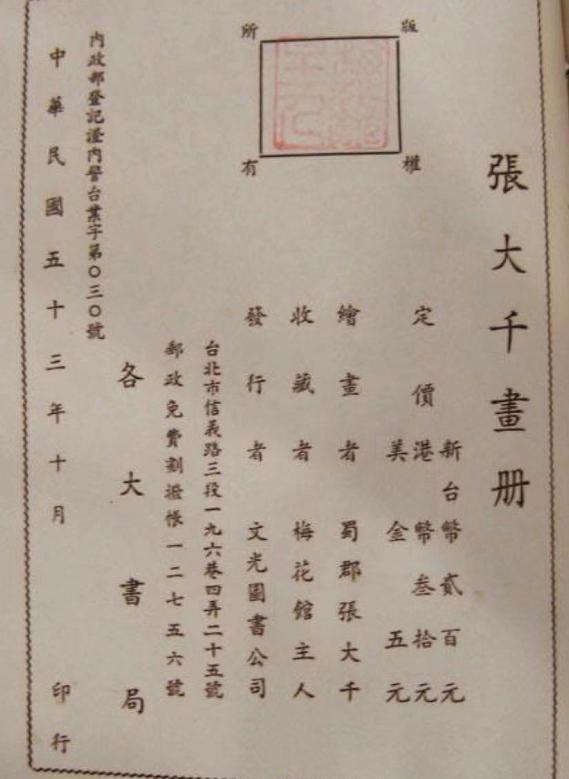 張大千畫册
版權所有
定價
新台幣貳百元
港幣叁拾元
美金五元
繪畫者 蜀郡張大千
收藏者 梅花館主人
發行者 文光圖書公司
台北市信義路三段一九六巷四弄二十五號
郵政免費劃撥帳一二七五六號
各大書局
內政部登記證內警台業字第〇三〇號
中華民國五十三年十月 印行